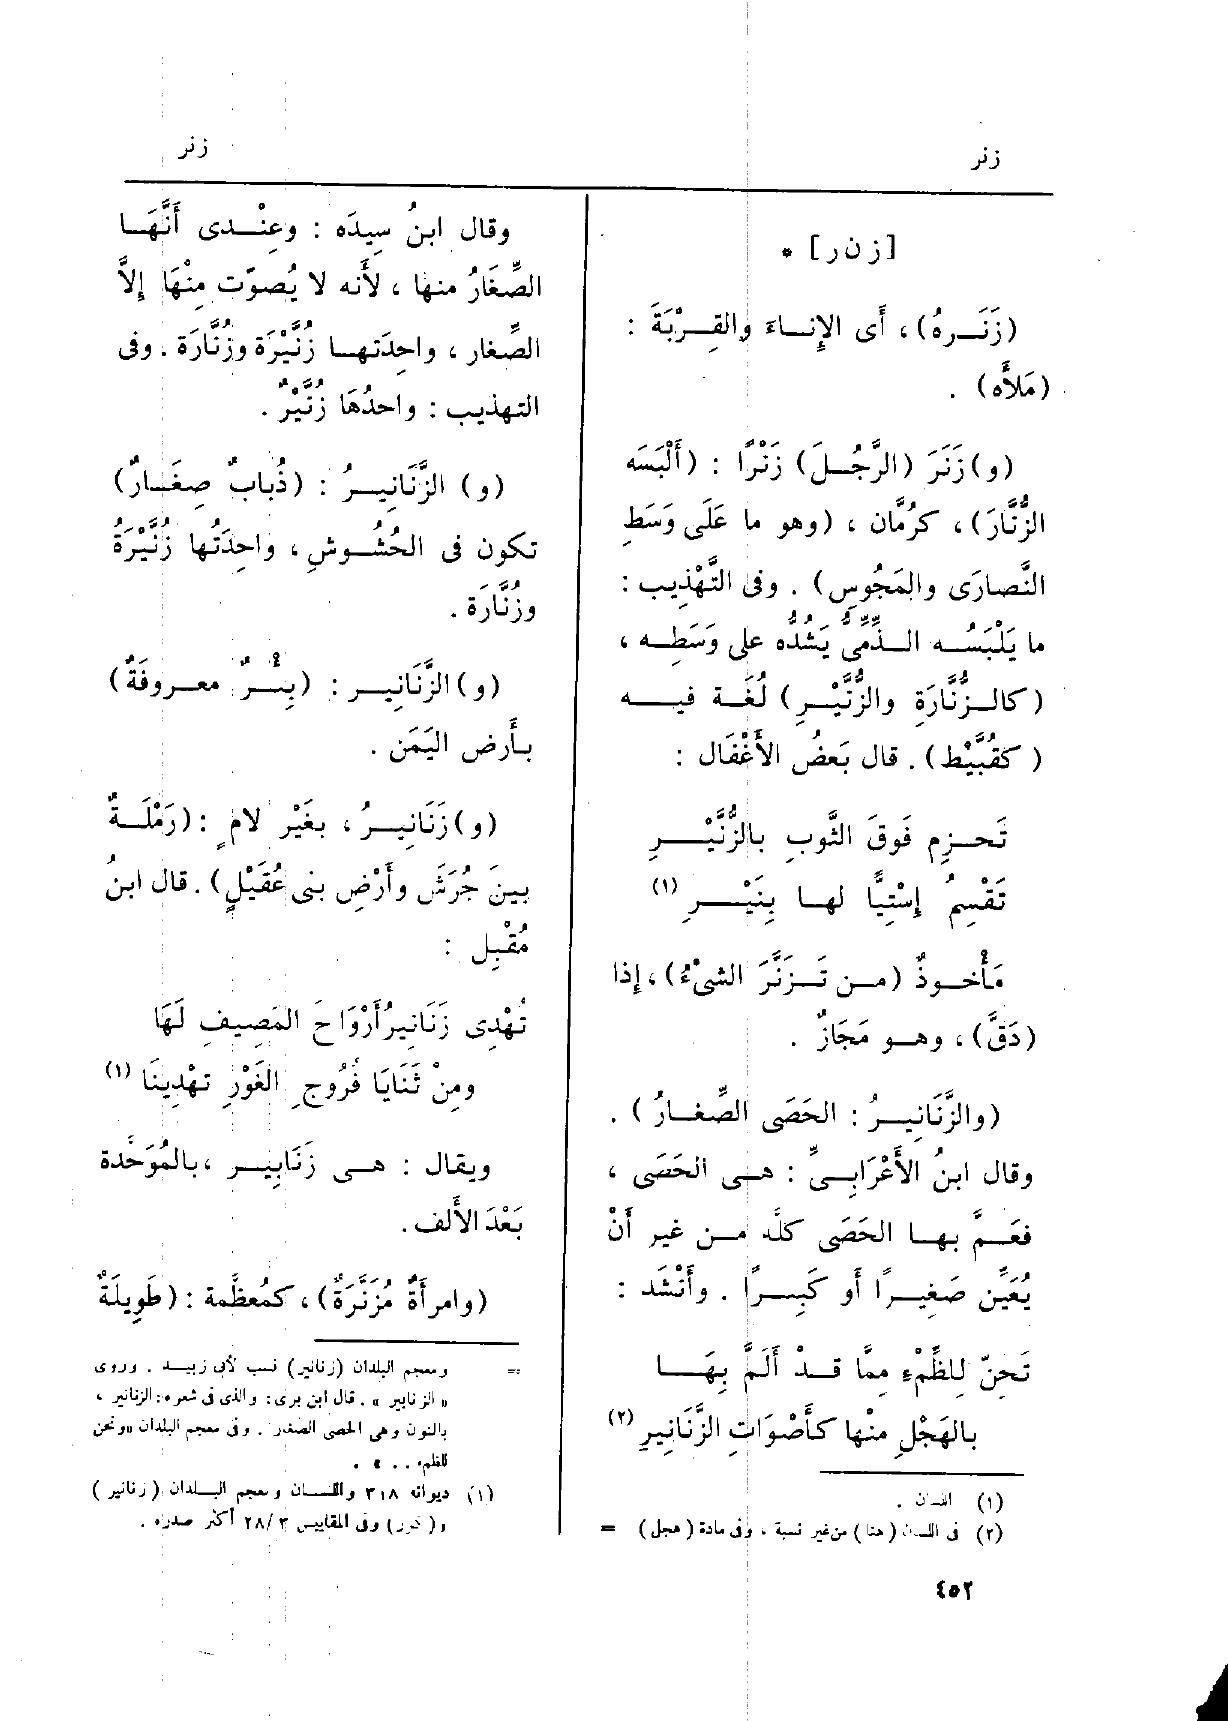 زنر
زنر
[زنر] *
(زَنَـرهُ)، أَى الإِنـاءَ والقِـرْبَةَ :
(مَلأَه) .
(و) زَنَرَ (الرَّجُـلَ) زَنْرًا : (أَلْبَسَه
الزُّنَّارَ)، كرُمَّان ، (وهو ما عَلَى وَسَطِ
النَّصارَى والمَجُوسِ) . وفى التَّهْذِيب :
ما يَلْبَسُـه الـذِّمِّىُّ يَشُدُّه على وَسَطِـه ،
(كالـزُّنَّارَةِ والزُّنَّيْـرِ) لُغَـة فيـه
(كقُبَّيْط) . قال بَعضُ الأَغْفَال :
تَحـزِم فَوقَ الثَّوبِ بالزُّنَّيْـرِ
تَقْسِمُ إِسْتِيًّا لهـا بِنَيْـرِ (١)
مَأْخـوذٌ (مـن تَـزَنَّرَ الشىْءُ)، إِذا
(دَقَّ) ، وهـو مَجَازٌ .
(والزَّنَانِيـرُ : الحَصَى الصِّغـارُ) .
وقال ابنُ الأَعْرَابـىِّ : هـى الحَصَى ،
فعَـمَّ بهـا الحَصَى كلَّه مـن غير أَنْ
يُعَيِّن صَغِيـرًا أَو كَبِيـرًا . وأَنْشَد :
تَحِنّ لِلظِّمْءِ مِمَّا قـدْ أَلَمَّ بِهَـا
بالهَجْلِ مِنْها كأَصْوَاتِ الزَّنَانِيرِ (٢)
(١) اللسان .
(٢) فى اللسان (هنا) من غير نسبة ، وفى مادة (هجل) =
وقال ابنُ سِيدَه : وعِنْـدى أَنَّهَـا
الصِّغَارُ منها ، لأَنه لا يُصوّت مِنْهَا إِلاَّ
الصِّغار ، واحِدَتهـا زُنَّيْرَة وزُنَّارَة . وفى
التهذيب : واحدُهَا زُنَّيْرٌ .
(و) الزَّنَانِيـرُ : (ذُبابٌ صِغَـارٌ)
تكون فى الحُشُـوشِ ، واحِدَتُها زُنَّيْرَةُ
وزُنَّارَة .
(و) الزَّنَانِيـر : (بِئْـرٌ معـروفَةٌ)
بـأَرض اليَمَن .
(و) زَنَانِيـرُ ، بغَيْر لامٍ : (رَمْلَـةٌ
بينَ جُرَشَ وأَرْضِ بنى عُقَيْلٍ) . قال ابنُ
مُقْبِل :
تُهْدِى زَنَانِيرُ أَرْوَاحَ المَصِيفِ لَهَا
ومِنْ ثَنَايَا فُرُوجِ الغَوْرِ تهْدِينَا (١)
ويقال : هـى زَنَابِيـر ، بالمُوَحَّدة
بَعْدَ الأَلف .
(وامرأَةٌ مُزَنَّرَةٌ) ، كمُعظَّمة : (طَوِيلَةٌ
= ومعجم البلدان (زنانير) نسب لأبى زبيـد . وروى
« الزنابير » . قال ابن برى : والذى فى شعره : الزنانير ،
بالنون وهى الحصى الصغار . وفى معجم البلدان «ونحن
للظمء . . » .
(١) ديوانه ٣١٨ واللسان ومعجم البلدان (زنانير)
و( ) وفى المقاييس ٢٨/٣ أكثر صدره .
٤٥٢